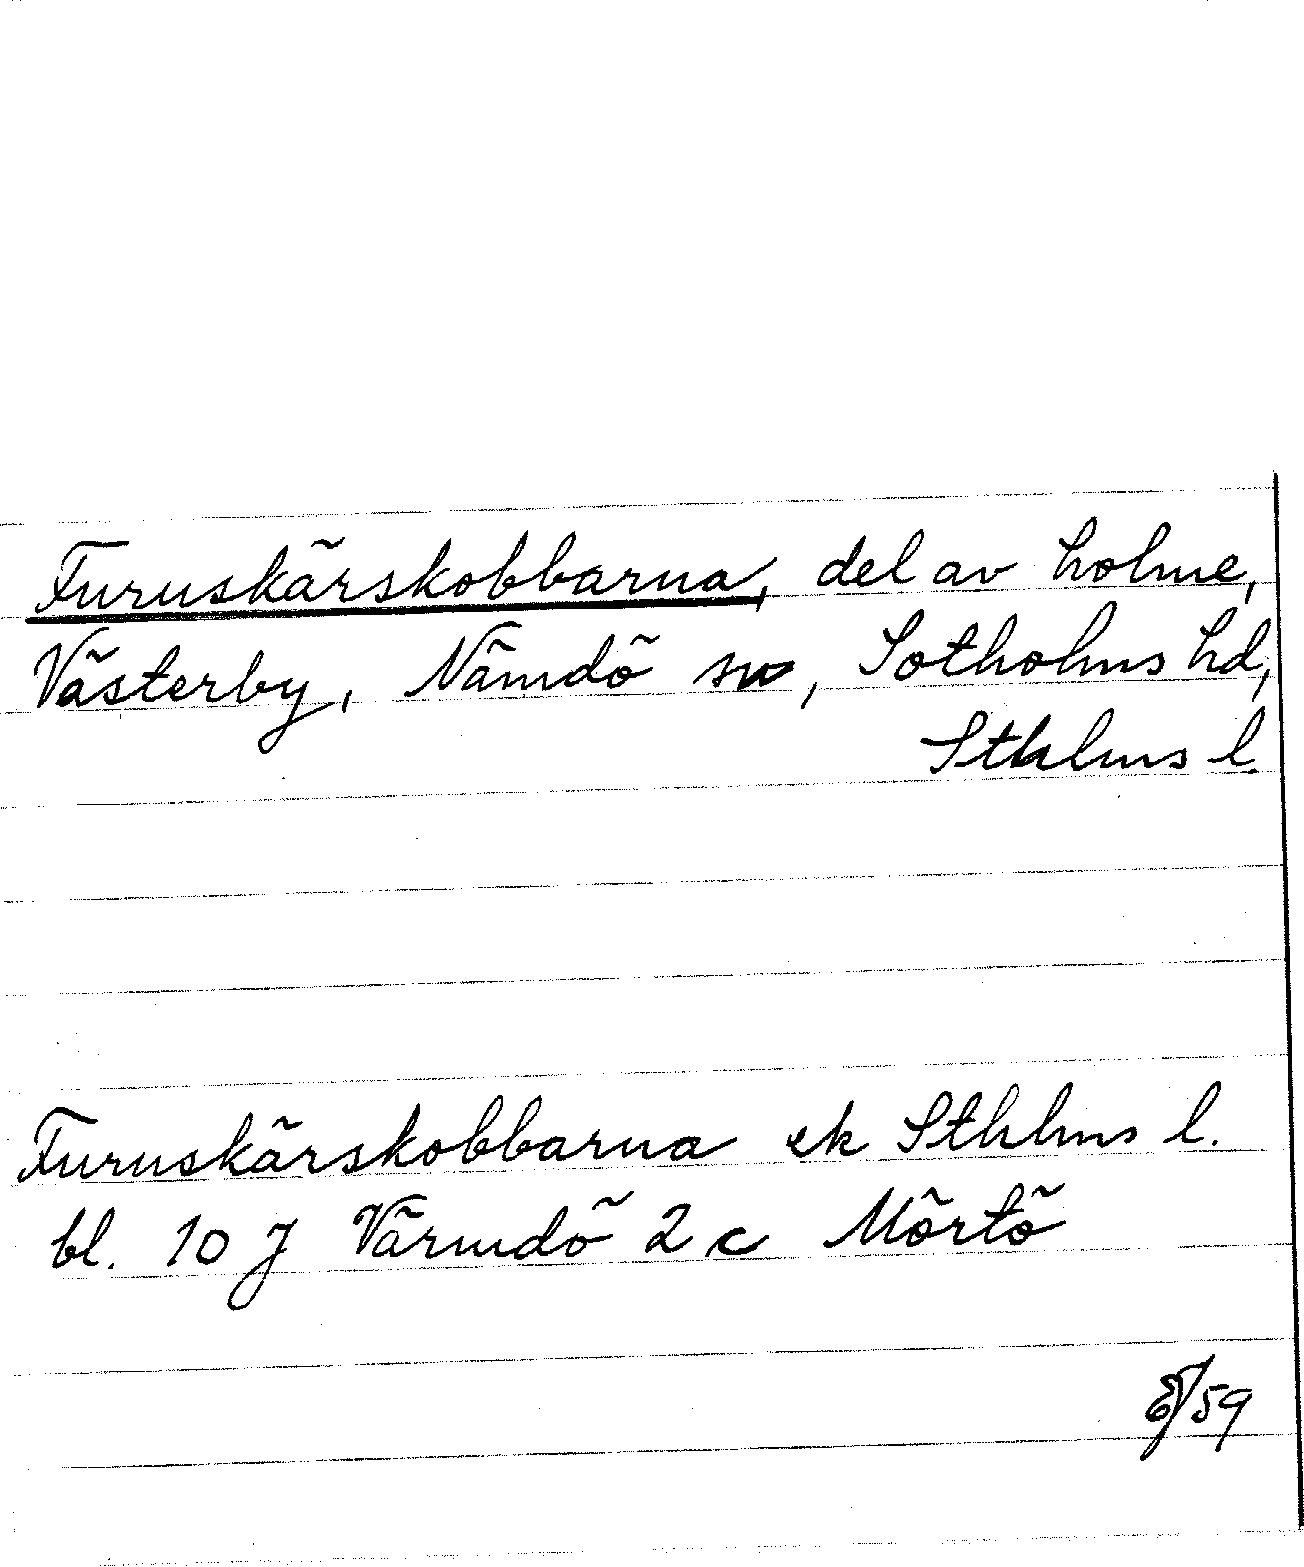 Furuskärskobbarna, del av holme,
Västerby, Nämdö sn, Sotholms hd,
Sthlms l.
Furuskärskobbarna ek Sthlms l.
bl. 10 J Värmdö 2 c Mörtö
/59